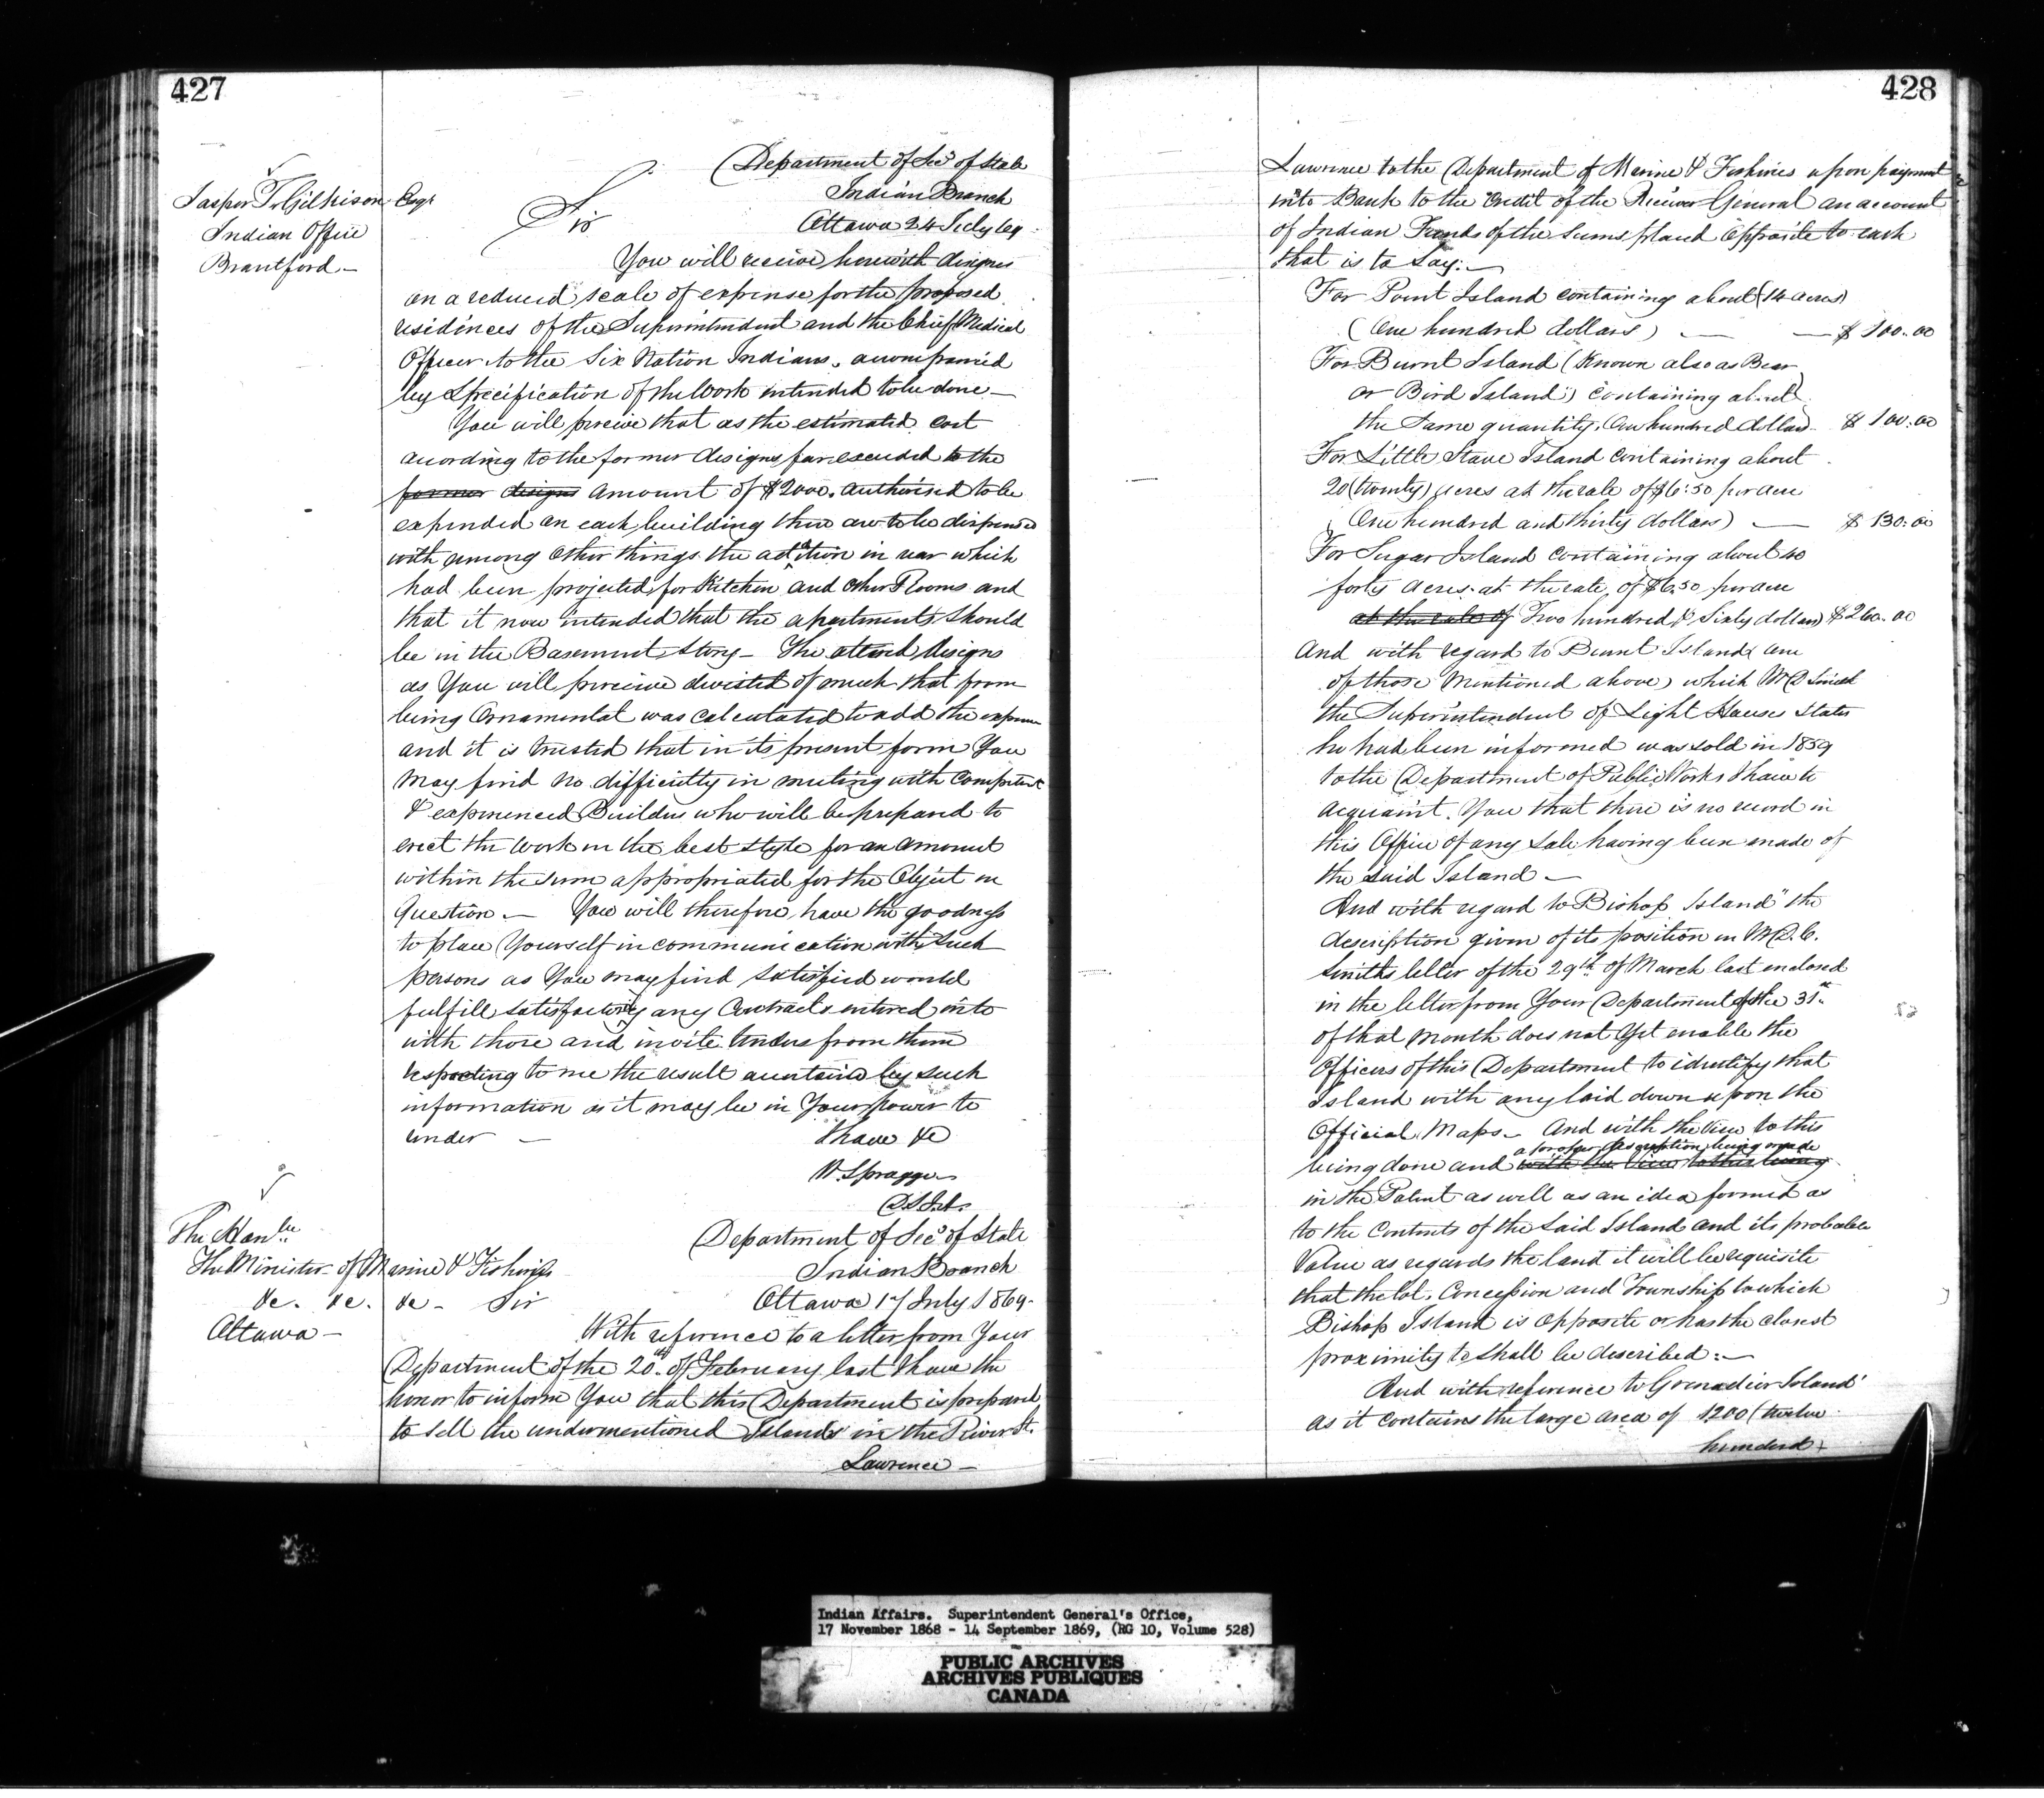 427
Department of Sec. of State
Indian Branch
Ottawa 24 July 69
Jasper T. Gilkison Esqr
Indian Office
Brantford
Sir
You will receive herewith designs
on a reduced scale of expense for the proposed
residences of the Superintendent and the Chief Medical
Officer to the Six Nation Indians, accompanied
by Specification of the Work intended to be done
You will perceive that as the estimated cost
according to the former designs far exceeded to the
former designs amount of $2000. authorised to be
expended on each building there are to be dispensed
with among other things the adition in rear which
had been projected for Kitchen and other Rooms and
that it now intended that the apartments should
be in the Basement Story - The altered designs
as You will perceive divested of much that from
being Ornamental was calculated to add the expense
and it is trusted that in its present form You
may find no difficulty in meeting with Competent
& experienced Builders who will be prepared to
erect the work in the best style for an amount
within the sum appropriated for the Object in
Question. — You will therefore have the goodness
to place Yourself in communication with such
persons as You may find satisfied would
fulfill satisfactorily any Contracts entered into
with those and invite tenders from them
respecting to me the result by such
information as it may be in Your power to
render —
I have &c
W. Spragge
D.S.I.A.
Department of Sec. of State
Indian Branch
Ottawa 17 July 1869
The Honble
The Minister of Marine & Fisheries
&c. &c. &c - Sir
Ottawa -
With reference to a letter from Your
Department of the 20th of February last I have the
honor to inform You that this Department is prepared
to sell the undermentioned Islands in the River St.
Lawrence -
428
Lawrence to the Department of Marine & Fisheries upon payment
into Bank to the Credit of the Receiver General on account
of Indian Funds of the sums placed opposite to each
that is to say: —
For Point Island containing about (14 acres)
(One hundred dollars) — — $100.00
For Burnt Island (Known also as Bear
or Bird Island) containing about
the same quantity, One hundred dollars - $100.00
For Little Stave Island containing about
20 (twenty) acres at the rate of $6.50 per acre
(One hundred and thirty dollars) — $130.00
For Sugar Island containing about 40
forty acres at the rate of $6.50 per acre
at the rate of Two hundred & Sixty dollars) $260.00
And with regard to Burnt Island (one
of those mentioned above) which Mr D Smith
the Superintendent of Light Houses states
he had been informed was sold in 1859
to the Department of Public Works I have to
acquaint You that there is no record in
this Office of any sale having been made of
the said Island —
And with regard to Bishop Island" the
description given of its position in Mr D. C.
Smiths letter of the 29th of March last enclosed
in the letter from Your Department of the 31st
of that month does not Yet enable the
Officers of this Department to identify that
Island with any laid down upon the
Official Maps - And with the View to this
a proper description being made
being done and with the view to this being
in the Patent as well as an idea formed as
to the Contents of the said Island and its probable
Value as regards the land it will be requisite
that the lot, Concession and Township to which
Bishop Island is opposite or has the closest
proximity to shall be described: —
And with reference to Grenadier Island
as it contains the large area of 1200 (twelve
hundred
Indian Affairs. Superintendent General's Office,
17 November 1868 - 14 September 1869, (RG 10, Volume 528)
PUBLIC ARCHIVES
ARCHIVES PUBLIQUES
CANADA